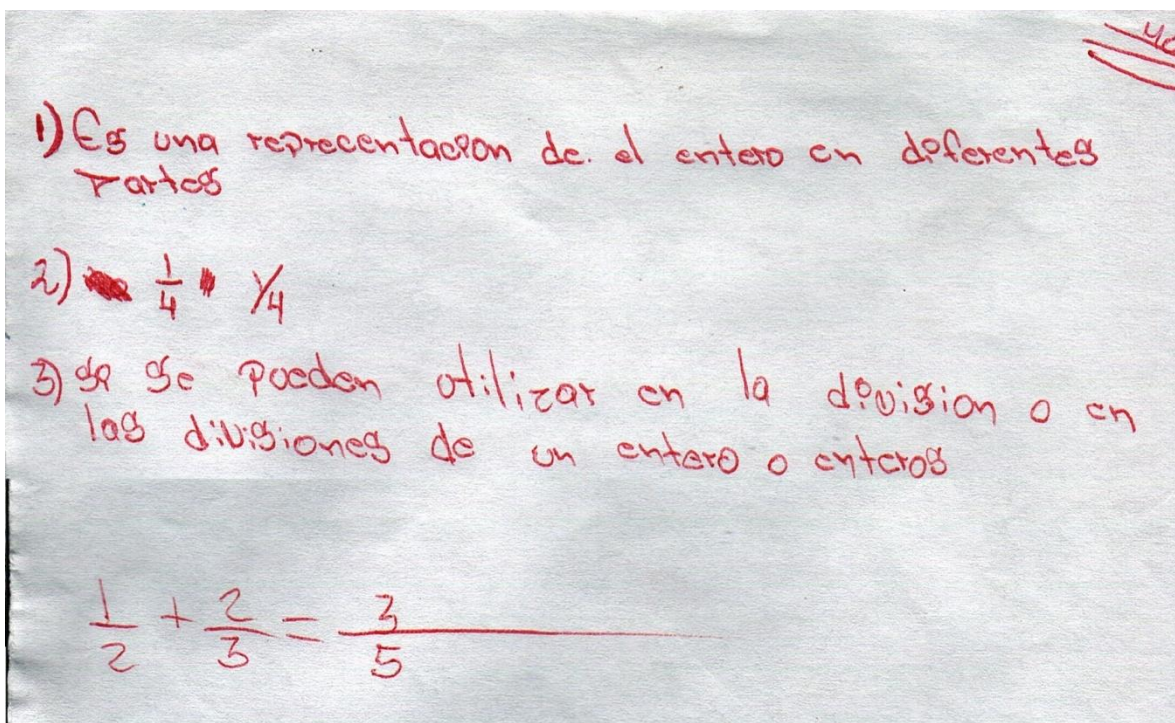 1) Es una reprecentacion de el entero en diferentes
Partes
2) 1/4 1/4
3) se se pueden utilizar en la division o en
las divisiones de un entero o enteros
1/2 + 2/3 = 3/5